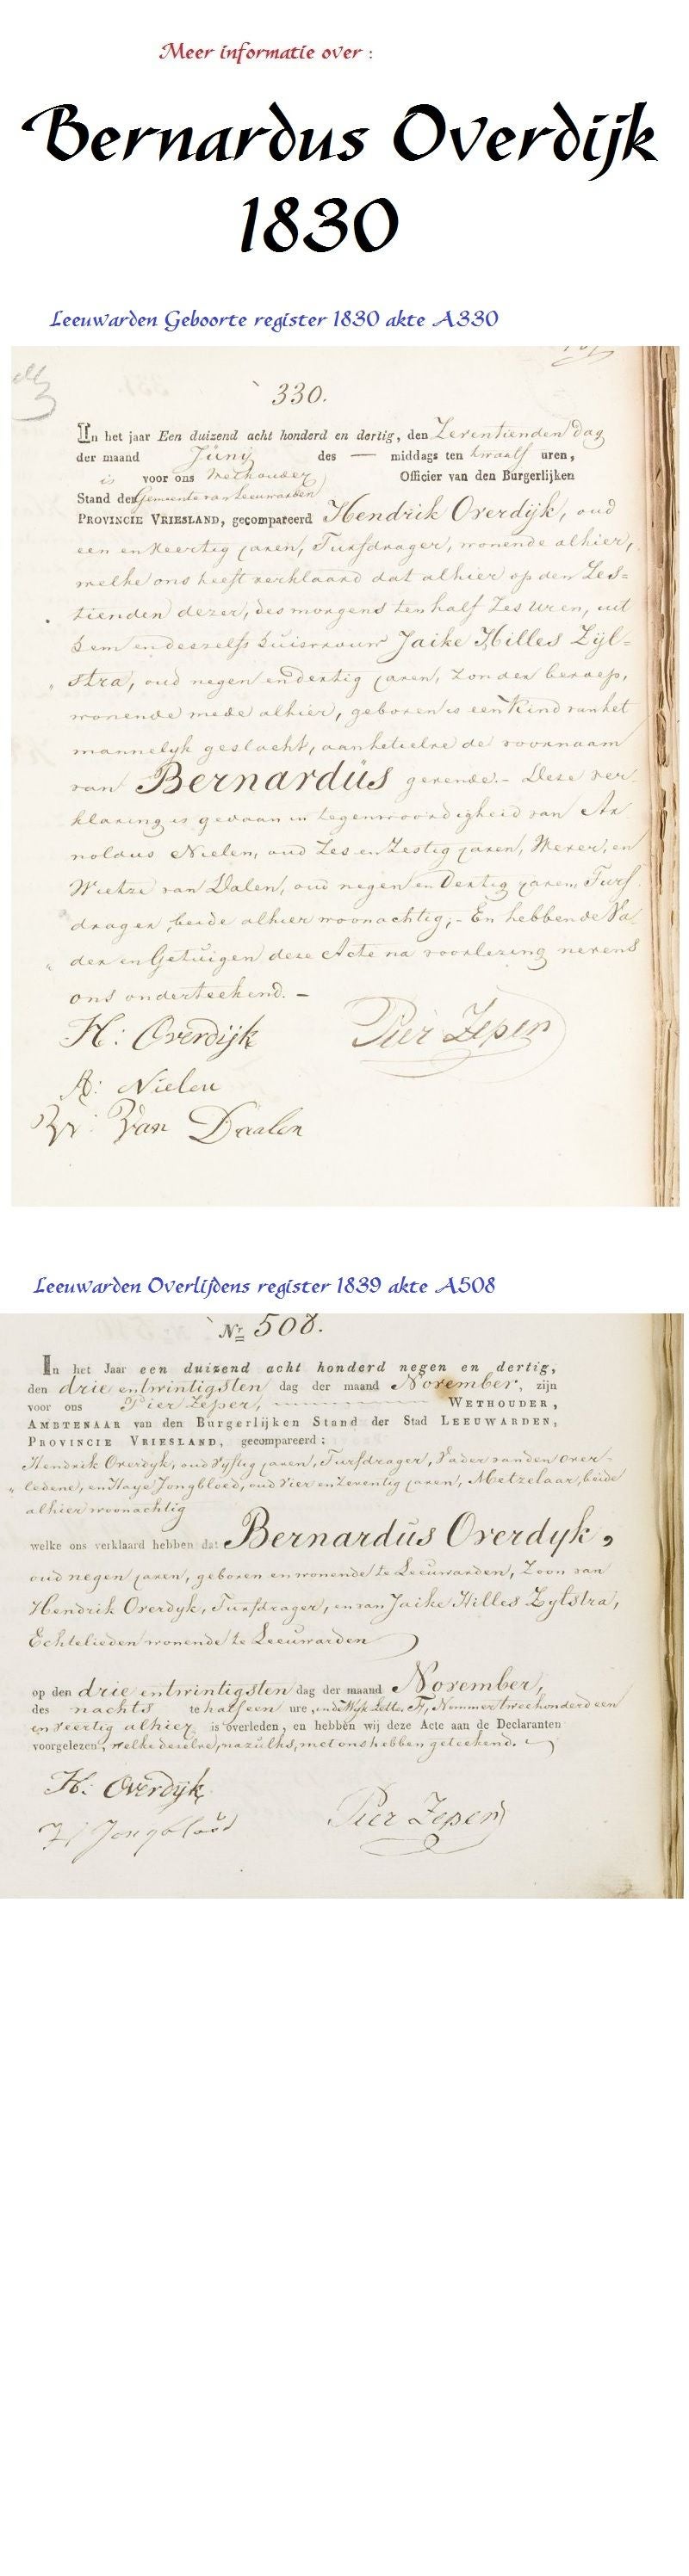 Meer informatie over :
Bernardus Overdijk
1830
Leeuwarden Geboorte register 1830 akte A330
330.
In het jaar Een duizend acht honderd en dertig, den Zeventienden dag
der maand Junij des — middags ten twaalf uren,
is voor ons Wethouder Officier van den Burgerlijken
Stand der Gemeente van Leeuwarden
PROVINCIE VRIESLAND, gecompareerd Hendrik Overdijk, oud
een en Veertig jaren, Turfdrager, wonende alhier,
welke ons heeft verklaard dat alhier op den Zes=
tienden dezer, des morgens ten half Zes Uren, uit
hem en deszelfs huisvrouw Jaike Hilles Zijl=
stra, oud negen en dertig jaren, zonder beroep,
wonende mede alhier, geboren is een Kind van het
mannelyk geslacht, aan hetzelve de voornaam
van Bernardus gevende.- Deze ver
klaring is gedaan in tegenwoordigheid van Ar
noldus Nielen, oud Zes en Zestig jaren, Wever, en
Wietze van Dalen, oud negen en Dertig jaren, Turf
drager, beide alhier woonachtig;- En hebben de Va
der en Getuigen deze Acte na voorlezing nevens
ons onderteekend. -
H: Overdijk Pier Zeper
A: Nielen
W: Van Daalen
Leeuwarden Overlijdens register 1839 akte A508
Nr 508.
In het Jaar een duizend acht honderd negen en dertig,
den drie en twintigsten dag der maand November, zijn
voor ons Pier Zeper, WETHOUDER,
AMBTENAAR van den Burgerlijken Stand der Stad LEEUWARDEN,
PROVINCIE VRIESLAND, gecompareerd:
Hendrik Overdyk, oud Vyftig jaren, Turfdrager, Vader van den over-
ledene, en Haye Jongbloed, oud Vier en Zeventig jaren, Metzelaar, beide
alhier woonachtig
welke ons verklaard hebben dat Bernardus Overdyk,
oud negen jaren, geboren en wonende te Leeuwarden, Zoon van
Hendrik Overdyk, Turfdrager, en van Jaike Hilles Zylstra,
Echtelieden wonende te Leeuwarden
op den drie en twintigsten dag der maand November,
des nachts te half een ure, in de Wyk Letter F, Nummer twee honderd een
en veertig alhier is overleden, en hebben wij deze Acte aan de Declaranten
voorgelezen, welke dezelve, na zulks, met ons hebben geteekend.
H: Overdyk
H Jongbloed Pier Zeper